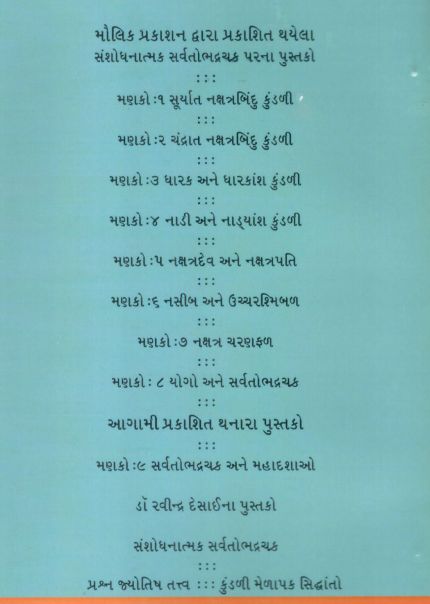 મૌલિક પ્રકાશન દ્વારા પ્રકાશિત થયેલા
સંશોધનાત્મક સર્વતોભદ્રચક્ર પરના પુસ્તકો
:::
મણકો :૧ સૂર્યાત નક્ષત્રબિંદુ કુંડળી
:::
મણકો :૨ ચંદ્રાત નક્ષત્રબિંદુ કુંડળી
:::
મણકો :૩ ધારક અને ધારકાંશ કુંડળી
:::
મણકો :૪ નાડી અને નાડ્યાંશ કુંડળી
:::
મણકો :૫ નક્ષત્રદેવ અને નક્ષત્રપતિ
:::
મણકો :૬ નસીબ અને ઉચ્ચરશ્મિબળ
:::
મણકો :૭ નક્ષત્ર ચરણફળ
:::
મણકો : ૮ યોગો અને સર્વતોભદ્રચક્ર
:::
આગામી પ્રકાશિત થનારા પુસ્તકો
:::
મણકો :૯ સર્વતોભદ્રચક્ર અને મહાદશાઓ
ડૉ રવીન્દ્ર દેસાઈના પુસ્તકો
સંશોધનાત્મક સર્વતોભદ્રચક્ર
:::
પ્રશ્ન જ્યોતિષ તત્ત્વ ::: કુંડળી મેળાપક સિદ્ધાંતો